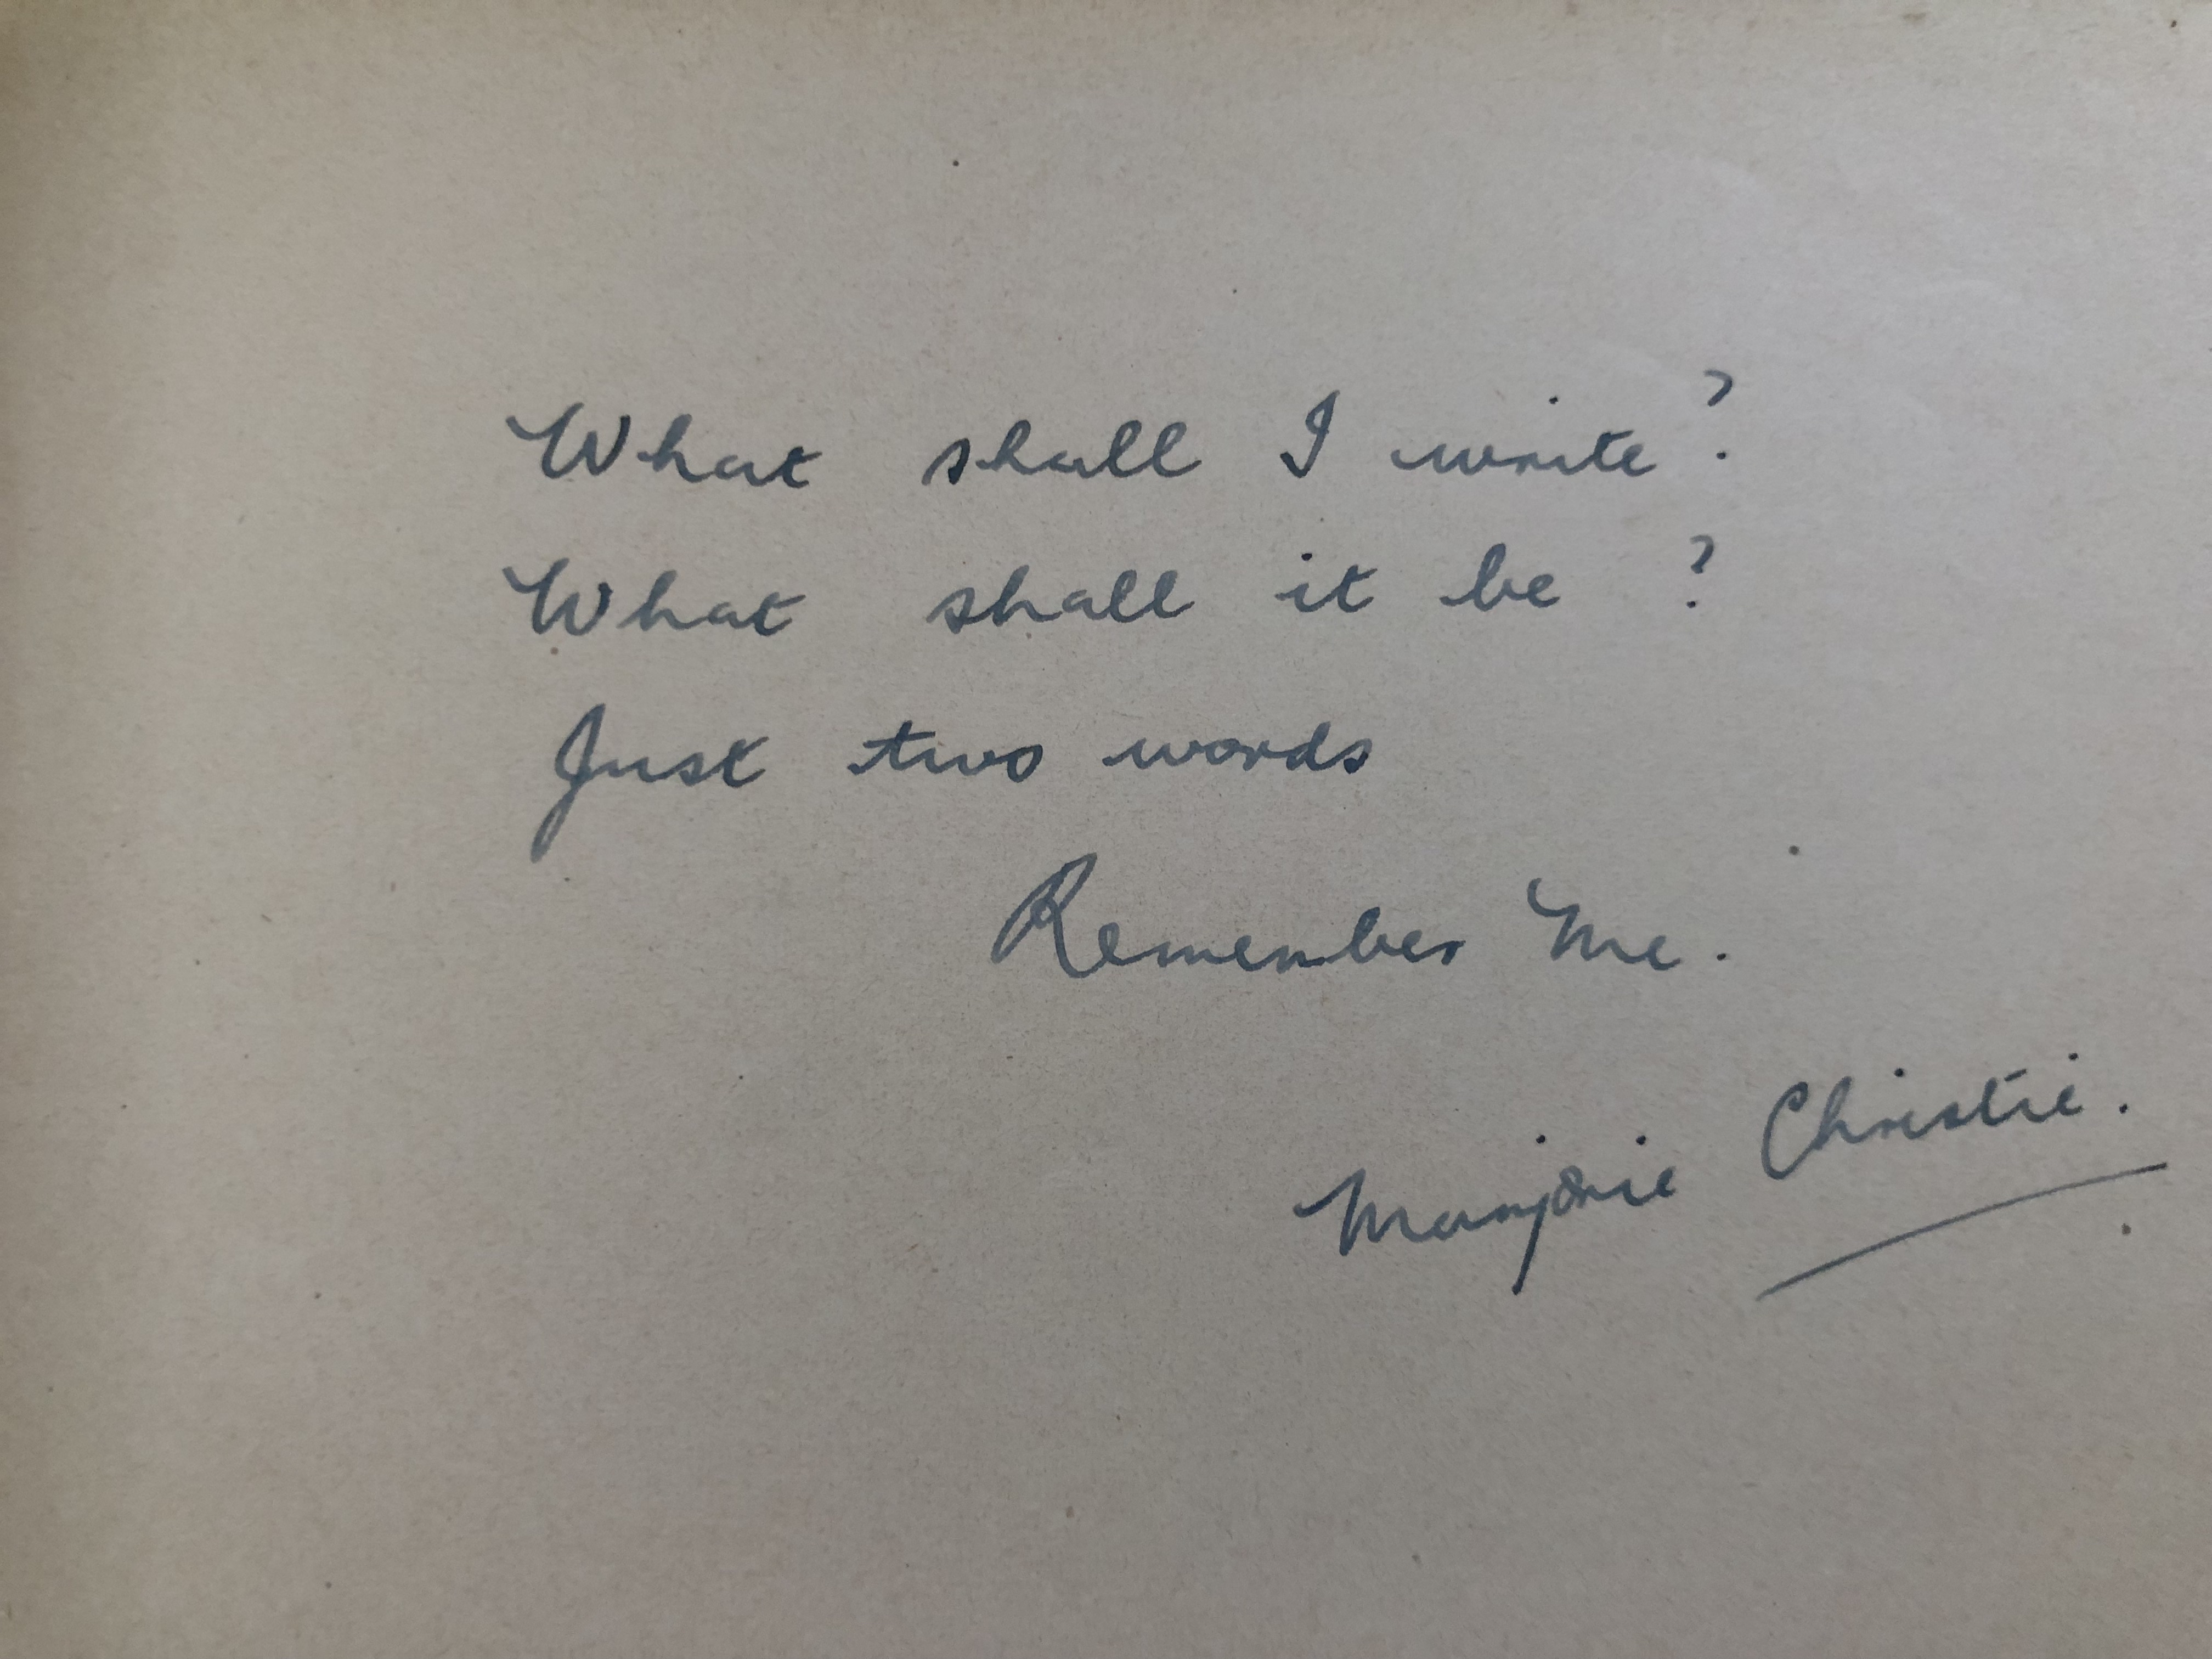 What shall I write?
What shall it be ?
Just two words
Remember Me.
Marjorie Christie.